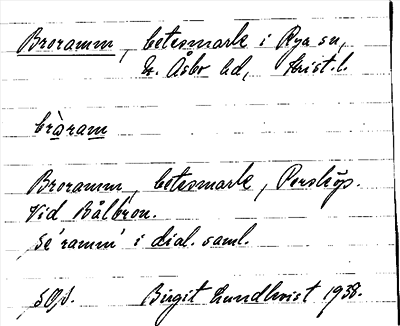 Broramm, betesmark i Rya sn,
N. Åsbo hd, Krist. l.
bròram
Broramm, betesmark, Perstorp.
Vid Bålbron.
Se 'ramm' i dial. saml.
Birgit Lundkvist 1938.